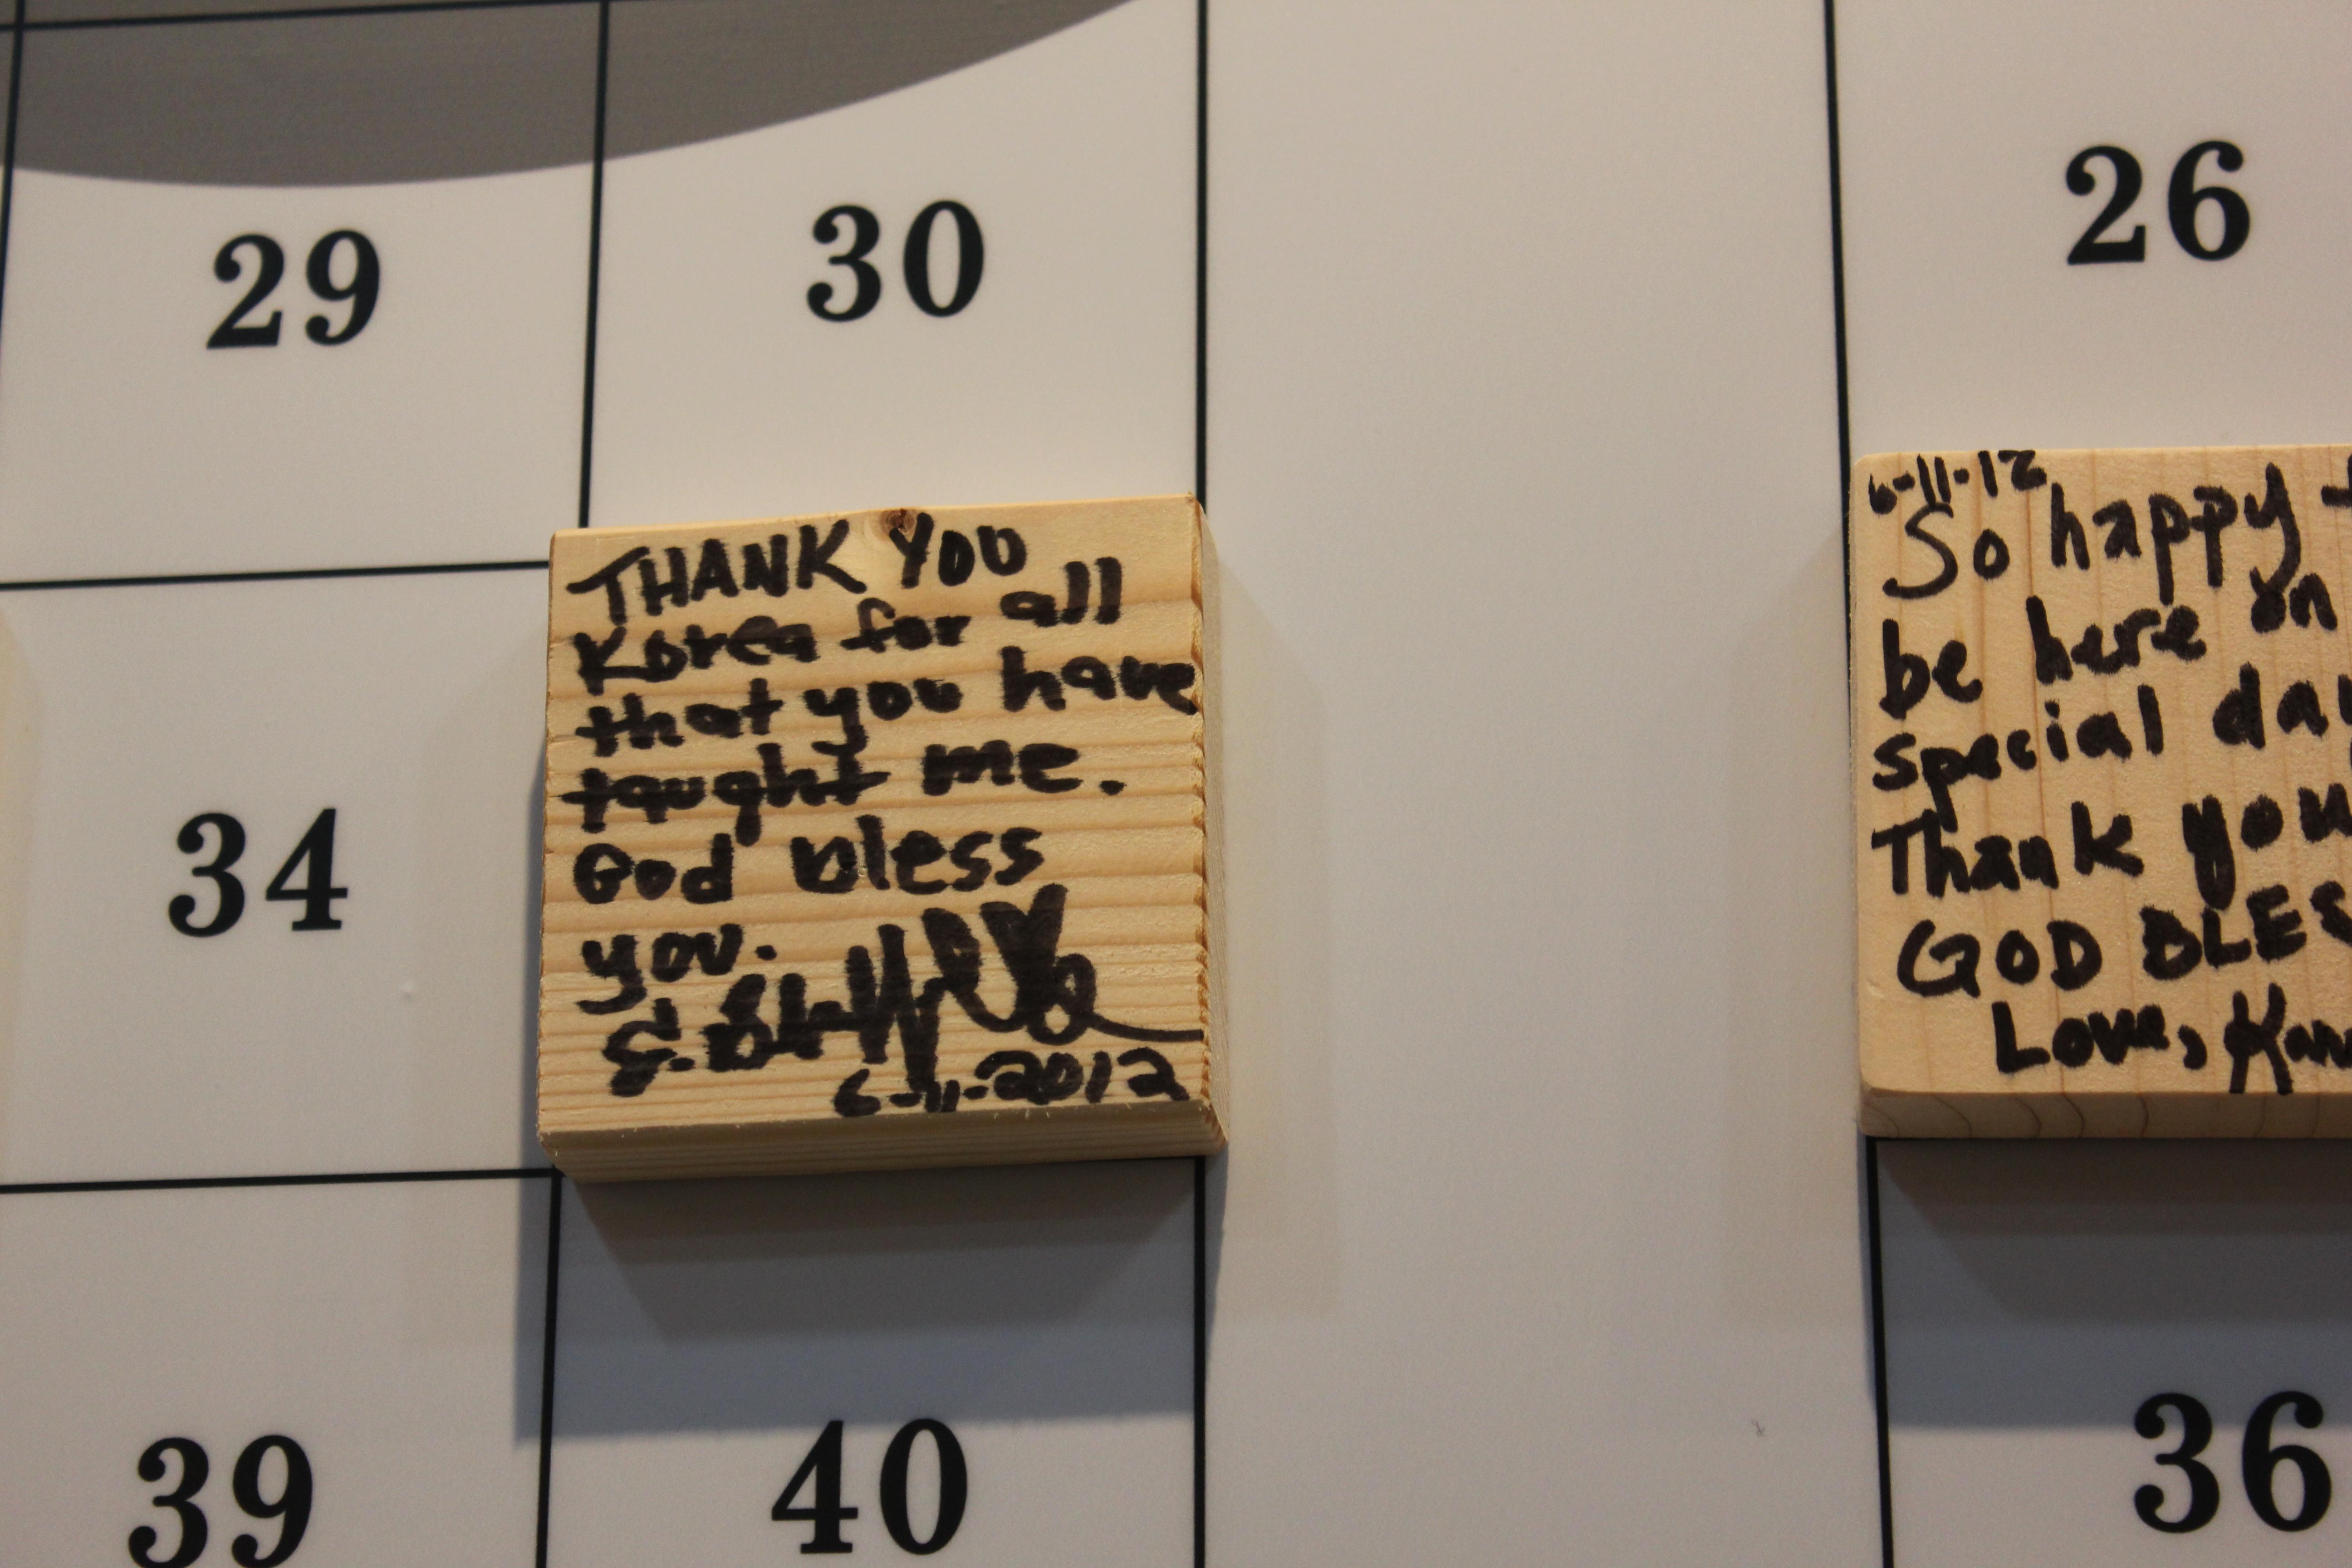 29
30
26
34
THANK YOU
Korea for all
that you have
taught me.
God bless
you.
6-11-2012
6-11-12
So happy
be here on
special
Thank you
GOD
Love,
39
40
36